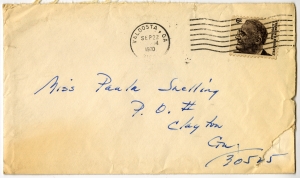 VALDOSTA, GA
SEP 22
1970
Miss Paula Snelling
P. O. #
Clayton
Ga.
30525